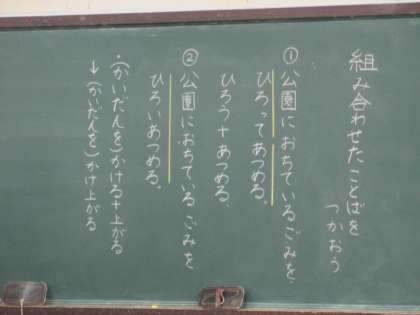 組み合わせたことばを
つかおう
①公園におちているごみを、
ひろってあつめる。
ひろう+あつめる。
②公園におちているごみを
ひろいあつめる。
・(かいだんを)かける+上がる
↓(かいだんを)かけ上がる